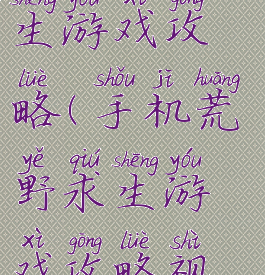 shēng yóu xì gōng
生游戏攻
lüè shǒu jī huāng
略(手机荒
yě qiú shēng yóu
野求生游
xì gōng lüè shì
戏攻略视